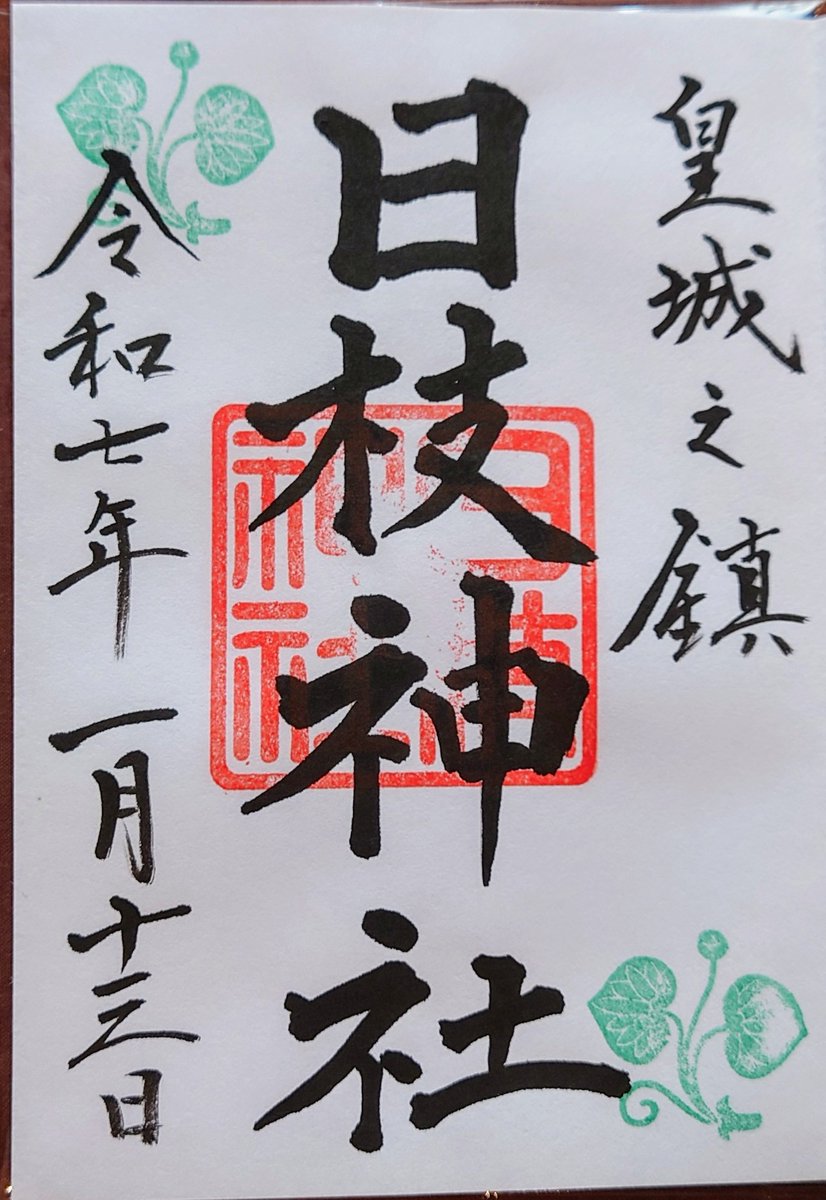 皇城之鎮
日枝神社
令和七年一月十三日
日枝神社